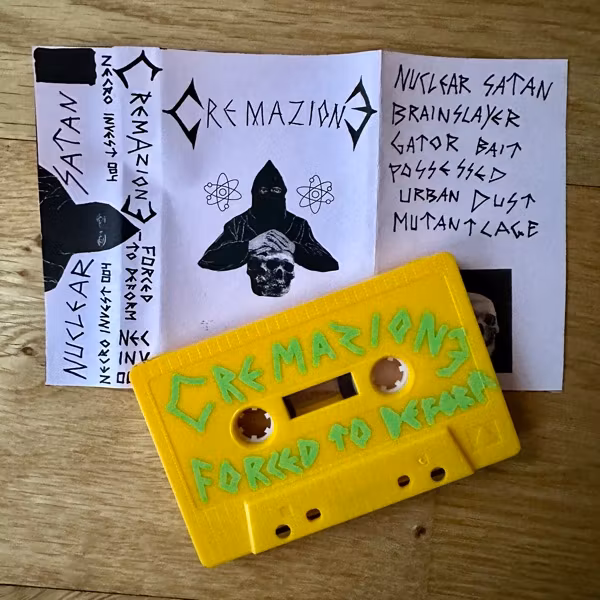 NUCLEAR SATAN
NECRO INVEST 004
CREMAZIONE - FORCED TO DEFORM
NECRO INVEST 004
CREMAZIONE
NUCLEAR SATAN
BRAINSLAYER
GATOR BAIT
POSSESSED
URBAN DUST
MUTANT CAGE
CREMAZIONE
FORCED TO DEFORM